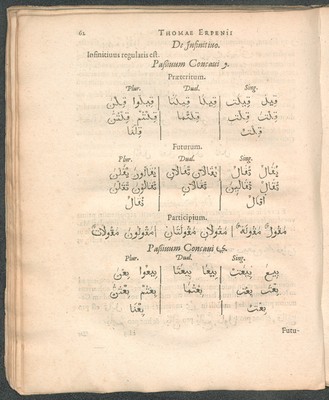 62 THOMAE ERPENII
De Infinitivo.
Infinitivus regularis est.
Passivum Concavi و
Præteritum.
Plur. Dual. Sing.
قِيلَ قِيلَتْ قِيلَا قِيلَتَا قِيلُوا قِلْنَ
قِلْتَ قِلْتِ قِلْتُمَا قِلْتُمْ قِلْتُنَّ
قِلْتُ قِلْنَا
Futurum.
Plur. Dual. Sing.
يُقَالُ تُقَالُ يُقَالَانِ تُقَالَانِ يُقَالُونَ يُقَلْنَ
تُقَالُ تُقَالِينَ تُقَالَانِ تُقَالُونَ تُقَلْنَ
أُقَالُ نُقَالُ
Participium.
مَقُولٌ مَقُولَةٌ مَقُولَانِ مَقُولَتَانِ مَقُولُونَ مَقُولَاتٌ
Passivum Concavi ي
Plur. Dual. Sing.
بِيعَ بِيعَتْ بِيعَا بِيعَتَا بِيعُوا بِعْنَ
بِعْتَ بِعْتِ بِعْتُمَا بِعْتُمْ بِعْتُنَّ
بِعْتُ بِعْنَا
Futu-